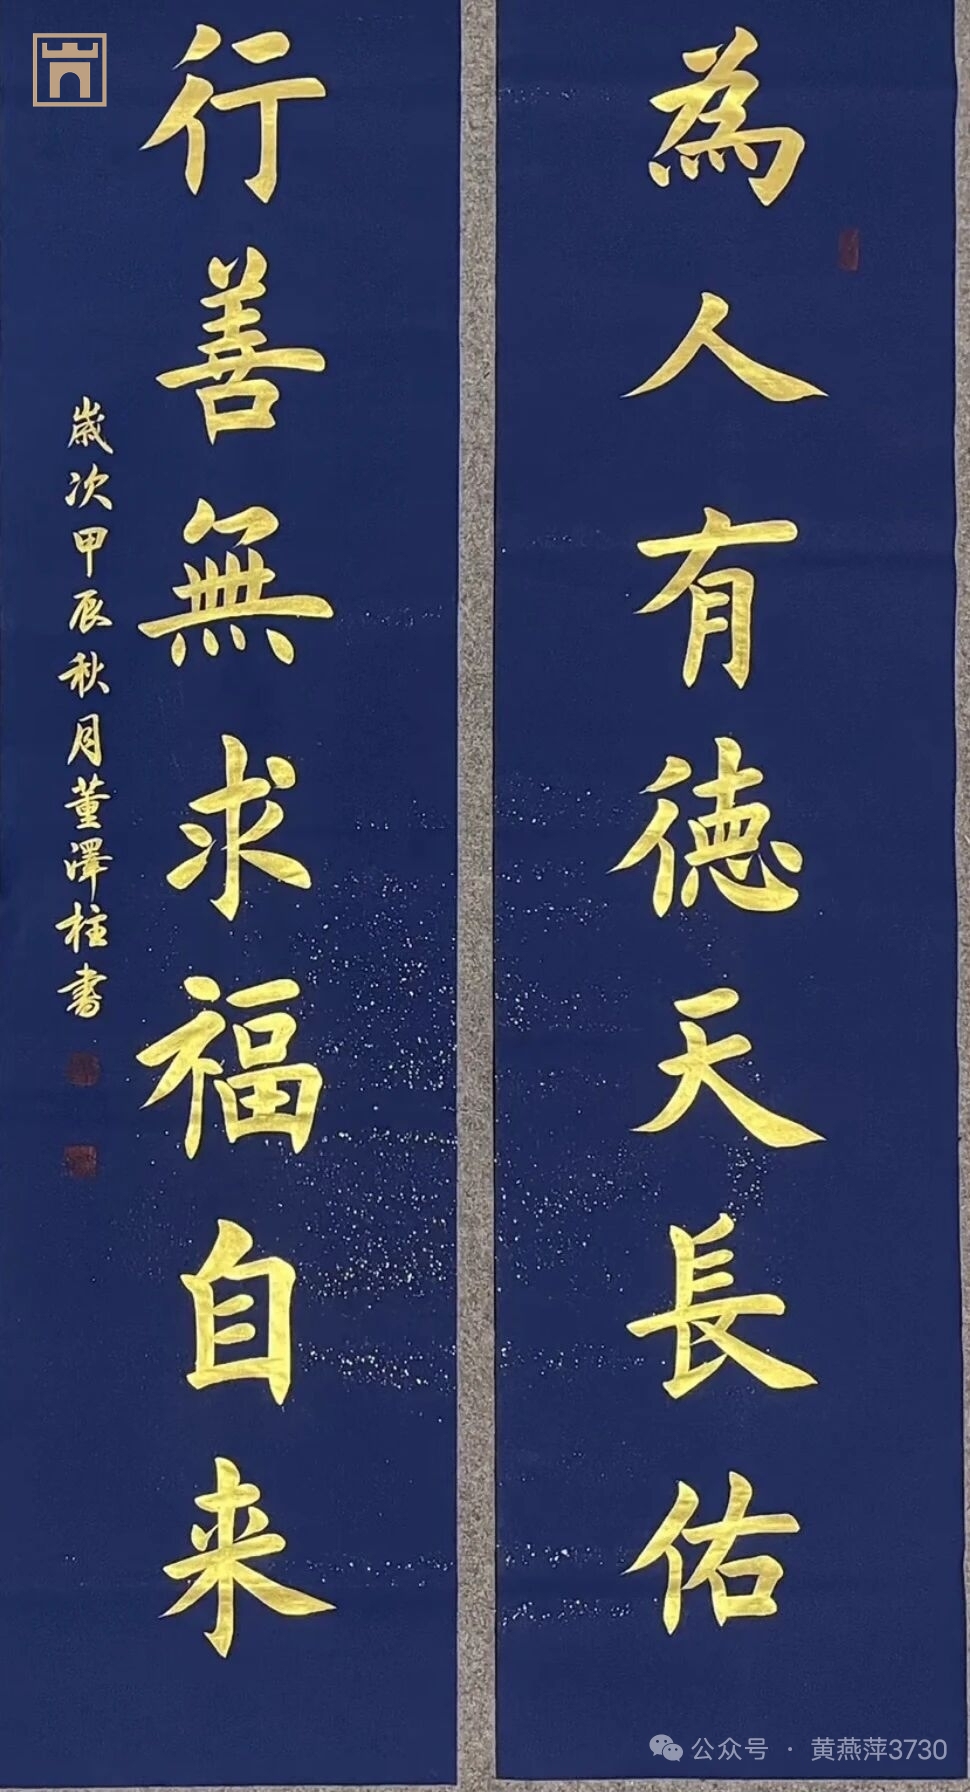 為人有德天長佑
行善無求福自来
歲次甲辰秋月董澤柱書
公众号 · 黄燕萍3730